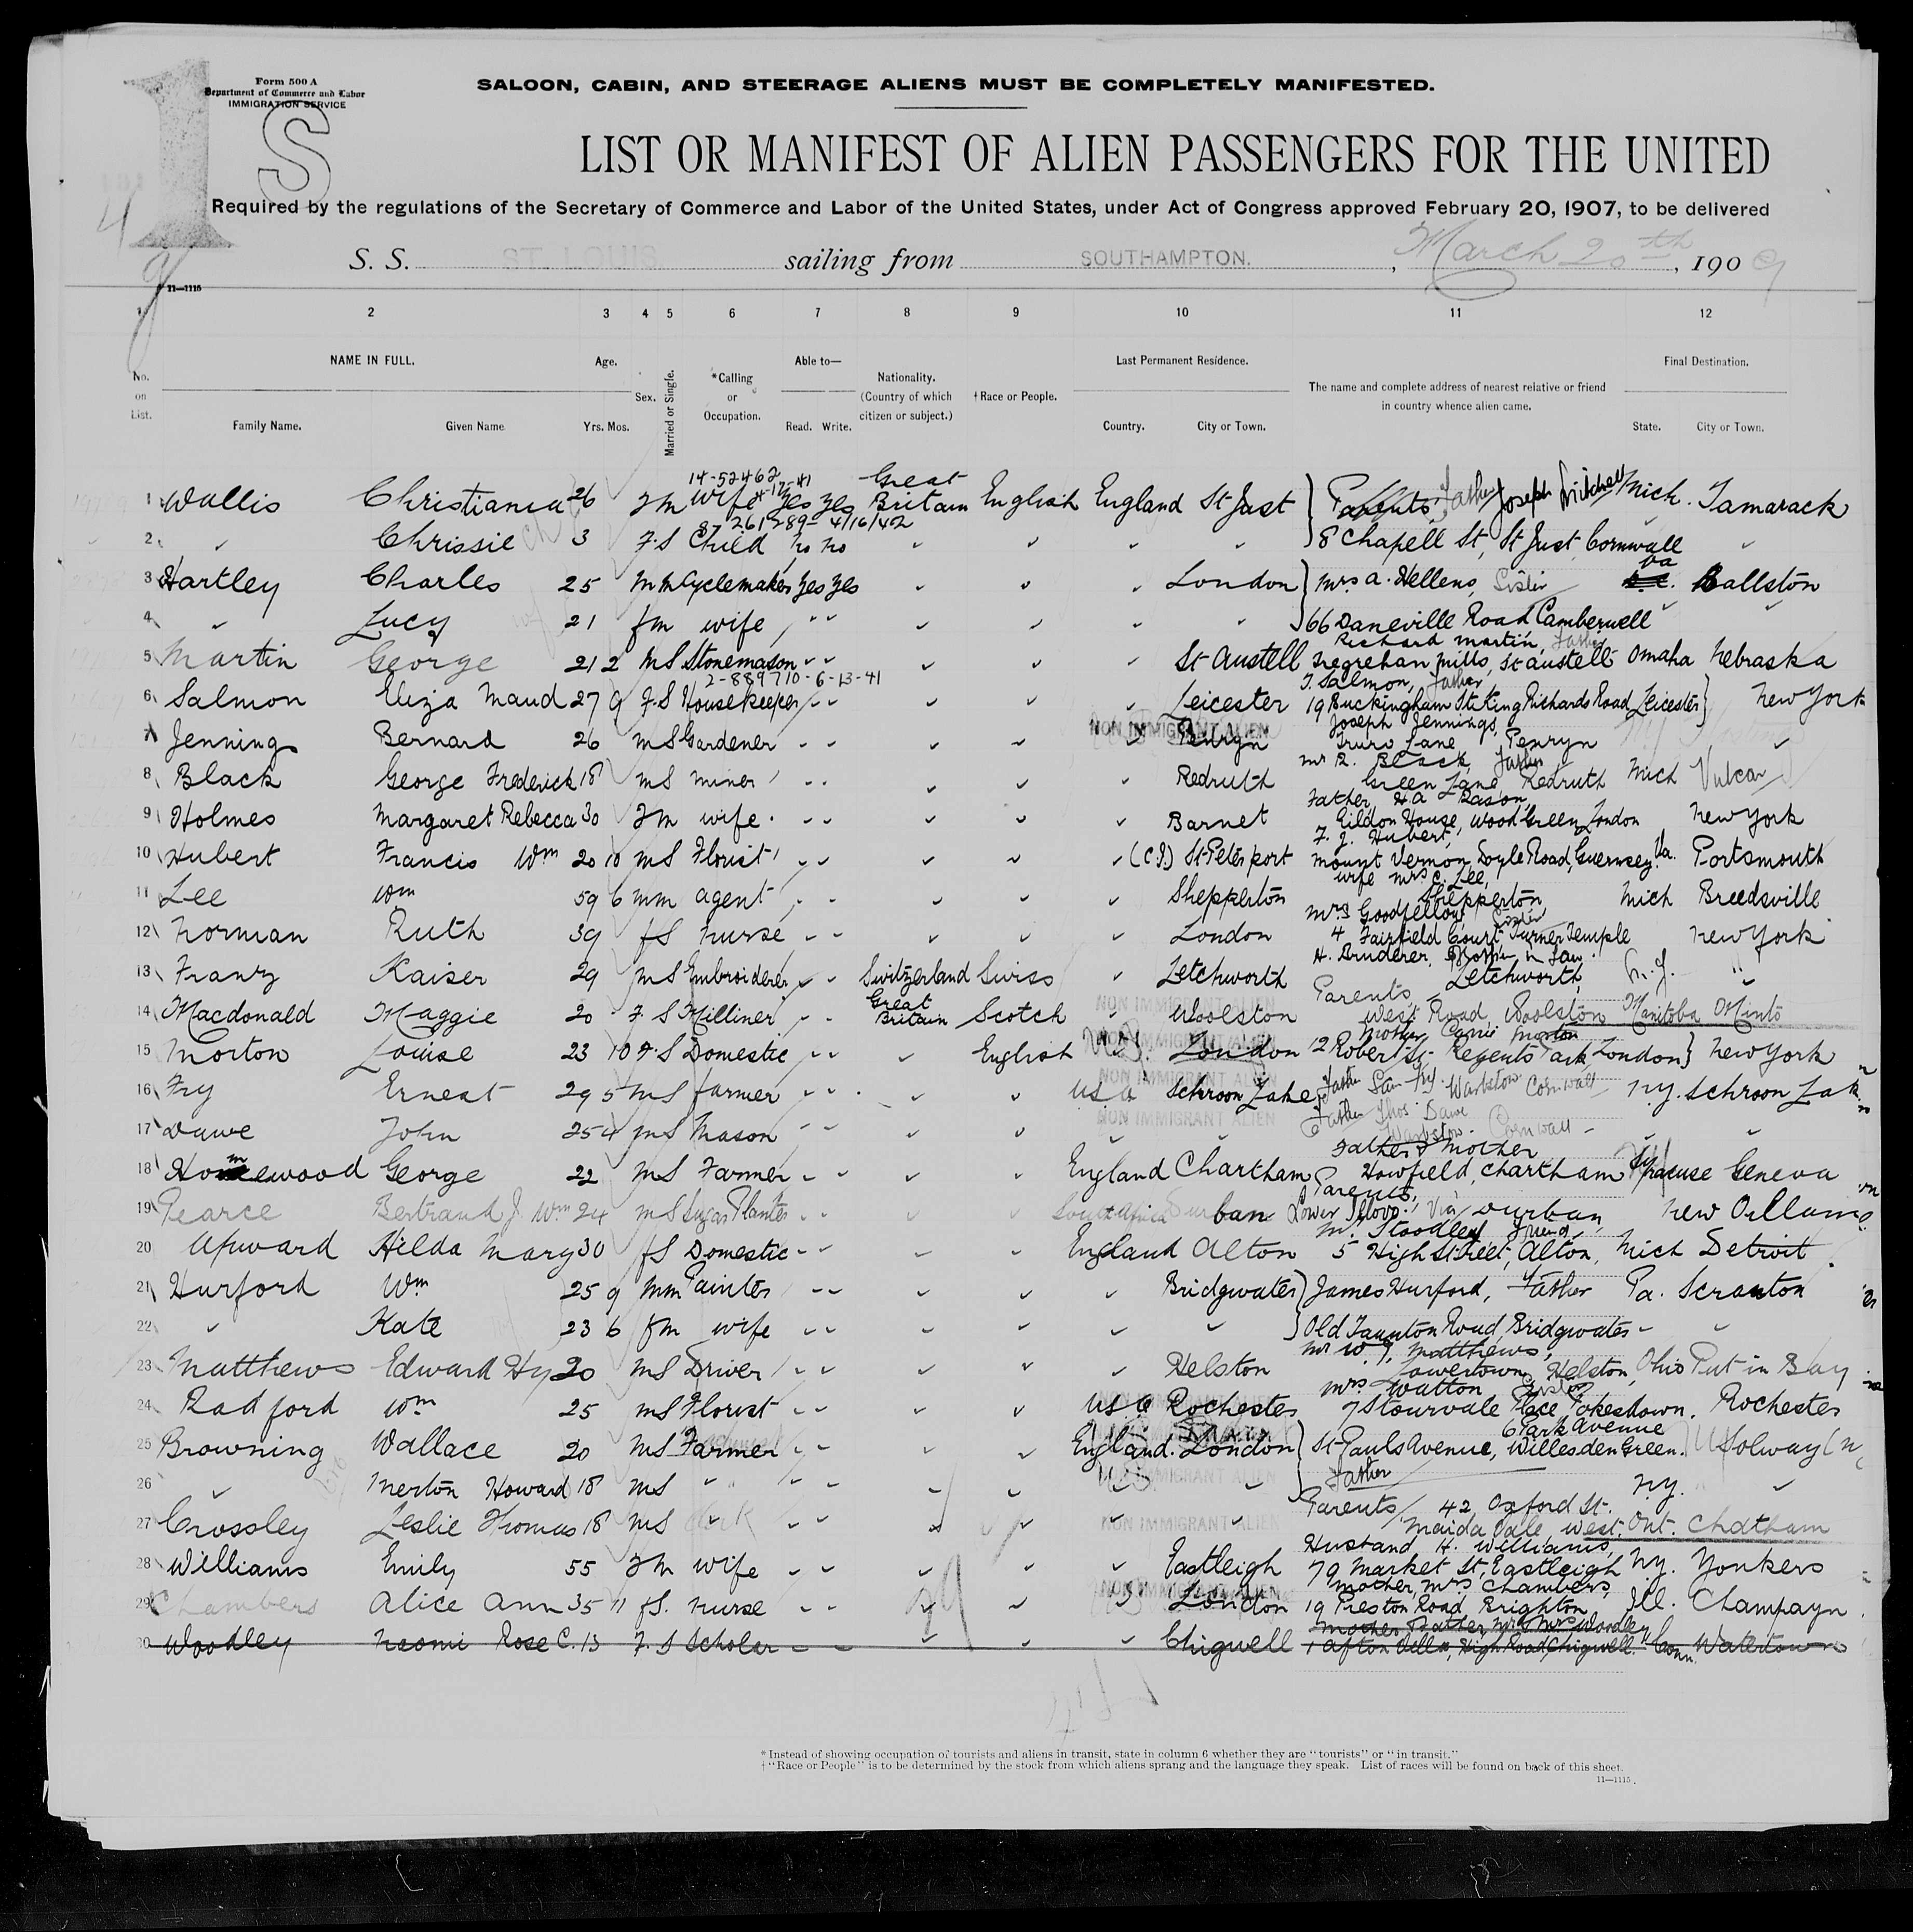 Form 500 A
Department of Commerce and Labor
IMMIGRATION SERVICE
1 S
SALOON, CABIN, AND STEERAGE ALIENS MUST BE COMPLETELY MANIFESTED.
LIST OR MANIFEST OF ALIEN PASSENGERS FOR THE UNITED
Required by the regulations of the Secretary of Commerce and Labor of the United States, under Act of Congress approved February 20, 1907, to be delivered
4
S. S. ST. LOUIS sailing from SOUTHAMPTON. , March 20th , 1909
11—1115
1 2 3 4 5 6 7 8 9 10 11 12
No. on List. NAME IN FULL. Family Name. Given Name Age. Yrs. Mos. Sex. Married or Single. *Calling or Occupation. Able to— Read. Write. Nationality. (Country of which citizen or subject.) †Race or People. Last Permanent Residence. Country. City or Town. The name and complete address of nearest relative or friend in country whence alien came. Final Destination. State. City or Town.
14-52462 4-17-41
1 Wallis Christiania 26 F M Wife Yes Yes Great Britain English England St Just Parents, Father Joseph Mitchell Mich. Tamarack
87 261289- 4/16/42
2 " Chrissie 3 F S Child No No " " " " 8 Chapell St, St Just Cornwall "
3 Hartley Charles 25 M M Cyclemaker Yes Yes " " " London Mrs A. Hellens, Sister Va Ballston
4 " Lucy 21 f m wife " " " " " " 66 Daneville Road Camberwell " "
Richard Martin, Father
5 Martin George 21 2 M S Stonemason " " " " " St Austell Tregrehan Mills, St Austell Omaha Nebraska
2-889710-6-13-41
T. Salmon, Father
6 Salmon Eliza Maud 27 9 F S Housekeeper " " " " " Leicester 19 Buckingham St. King Richards Road Leicester New York
NON IMMIGRANT ALIEN
Joseph Jennings,
7 Jennings Bernard 26 M S Gardener " " " " " Penryn Truro Lane Penryn "
Mr R. Black, Father
8 Black George Frederick 18 M S Miner " " " " " Redruth Green Lane Redruth Mich Vulcan
Father, H.A. Rason,
9 Holmes Margaret Rebecca 30 F M wife " " " " " Barnet Gildon House, Wood Green London New York
F. J. Hubert,
10 Hubert Francis Wm 20 10 M S Florist " " " " " (C.I.) St Peters port Mount Vernon, Doyle Road, Guernsey Va. Portsmouth
wife Mrs C. Lee,
11 Lee Wm 59 6 M M Agent " " " " " Shepperton Shepperton Mich Breedsville
Mrs Goodfellow, Sister
12 Norman Ruth 39 f S Nurse " " " " " London 4 Fairfield Court, Turner Temple New York
H. Bruderer, Brother in law
13 Franz Kaiser 29 M S Embroiderer " " Switzerland Swiss " Letchworth Letchworth, N.J. "
NON IMMIGRANT ALIEN
Parents,
14 Macdonald Maggie 20 F S Milliner " " Great Britain Scotch " Woolston West Road, Woolston Manitoba Minto
NON IMMIGRANT ALIEN
Mother Carrie Morton
15 Morton Louise 23 10 F S Domestic " " " English U.S. London 12 Robert St. Regents Park, London New York
NON IMMIGRANT ALIEN
16 Fry Ernest 29 5 M S farmer " " " " U S A Schroon Lake Father Sam Fry Warbstow Cornwall N.Y. Schroon Lake
NON IMMIGRANT ALIEN
17 Dawe John 25 4 M S Mason " " " " " " Father Thos. Dawe Warbstow Cornwall " "
Father & Mother
18 Homewood George 22 M S Farmer " " " " England Chartham Howfield, Chartham Syracuse Geneva
Parents,
19 Pearce Bertrand J. Wm 24 M S Sugar Planter " " " " South Africa Durban Lower Illovo, Via Durban New Orlleans
Mr. Stoodley Friend,
20 Upward Hilda Mary 30 f S Domestic " " " " England Alton 5 High Street, Alton, Mich Detroit
21 Hurford Wm 25 9 M M Painter " " " " " Bridgwater James Hurford, Father Pa. Scranton
22 " Kate 23 6 f m wife " " " " " " Old Taunton Road, Bridgwater " "
Mr W. J. Matthews,
23 Matthews Edward Hy 20 M S Driver " " " " " Helston Lowertown, Helston, Ohio Put in Bay
Mrs Watton Sister
24 Radford Wm 25 M S Florist " " " " U S A Rochester 7 Stourvale Place Pokesdown. Rochester
6 Park Avenue
25 Browning Wallace 20 M S Farmer " " " " England London St Pauls Avenue, Willesden Green. Solway
NON IMMIGRANT ALIEN
26 " Merton Howard 18 M S " " " " " U.S. " Father N.Y. "
NON IMMIGRANT ALIEN
Parents, 42, Oxford St.
27 Crossley Leslie Thomas 18 M S clerk " " " " " " Maida Vale, West. Ont. Chatham
Husband H. Williams,
28 Williams Emily 55 F M wife " " " " " Eastleigh 79 Market St, Eastleigh N.Y. Yonkers
NON IMMIGRANT ALIEN
Mother, Mrs Chambers,
29 Chambers Alice Ann 35 11 f S. Nurse " " " " U.S. London 19 Preston Road, Brighton Ill. Champayn
Mrs Woodley
30 Woodley Naomi Rose C. 13 F. S Scholar " " " " " Chigwell Afton Villa, High Road, Chigwell. Conn. Watertown
* Instead of showing occupation of tourists and aliens in transit, state in column 6 whether they are "tourists" or "in transit."
† "Race or People" is to be determined by the stock from which aliens sprang and the language they speak. List of races will be found on back of this sheet.
11—1115.